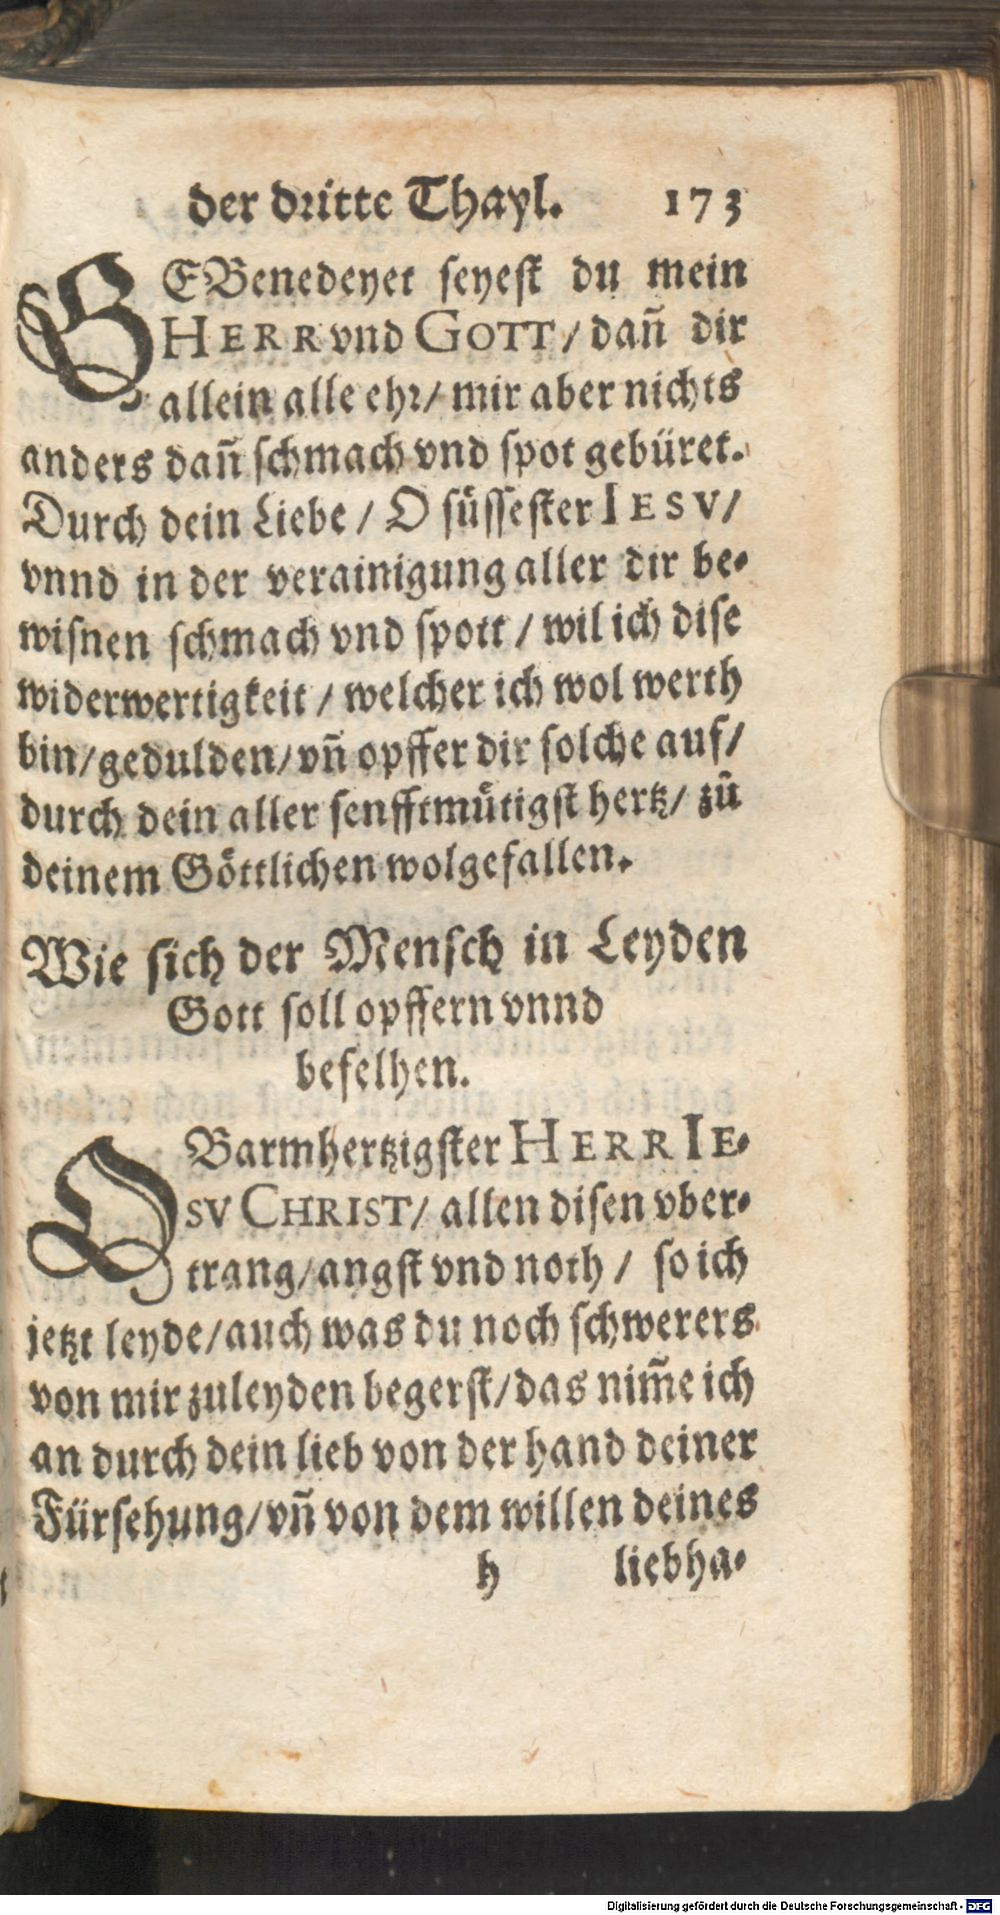 der dritte Thayl. 173
GEBenedeyet seyest du mein
HERR vnd GOTT / dañ dir
allein alle ehr / mir aber nichts
anders dañ schmach vnd spot gebüret.
Durch dein Liebe / O süssester IESV /
vnnd in der verainigung aller dir be-
wisnen schmach vnd spott / wil ich dise
widerwertigkeit / welcher ich wol werth
bin / gedulden / vñ opffer dir solche auf /
durch dein aller senfftmütigst hertz / zů
deinem Göttlichen wolgefallen.
Wie sich der Mensch in Leyden
Gott soll opffern vnnd
befelhen.
O Barmhertzigster HERR IE-
SV CHRIST / allen disen vber-
trang / angst vnd noth / so ich
jetzt leyde / auch was du noch schwerers
von mir zuleyden begerst / das nim̃e ich
an durch dein lieb von der hand deiner
Fürsehung / vñ von dem willen deines
h liebha-
Digitalisierung gefördert durch die Deutsche Forschungsgemeinschaft - DFG